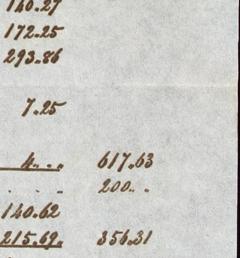 140.27
172.25
293.86
7.25
4... 617.63
. . . 200..
140.62
215.69. 356.31